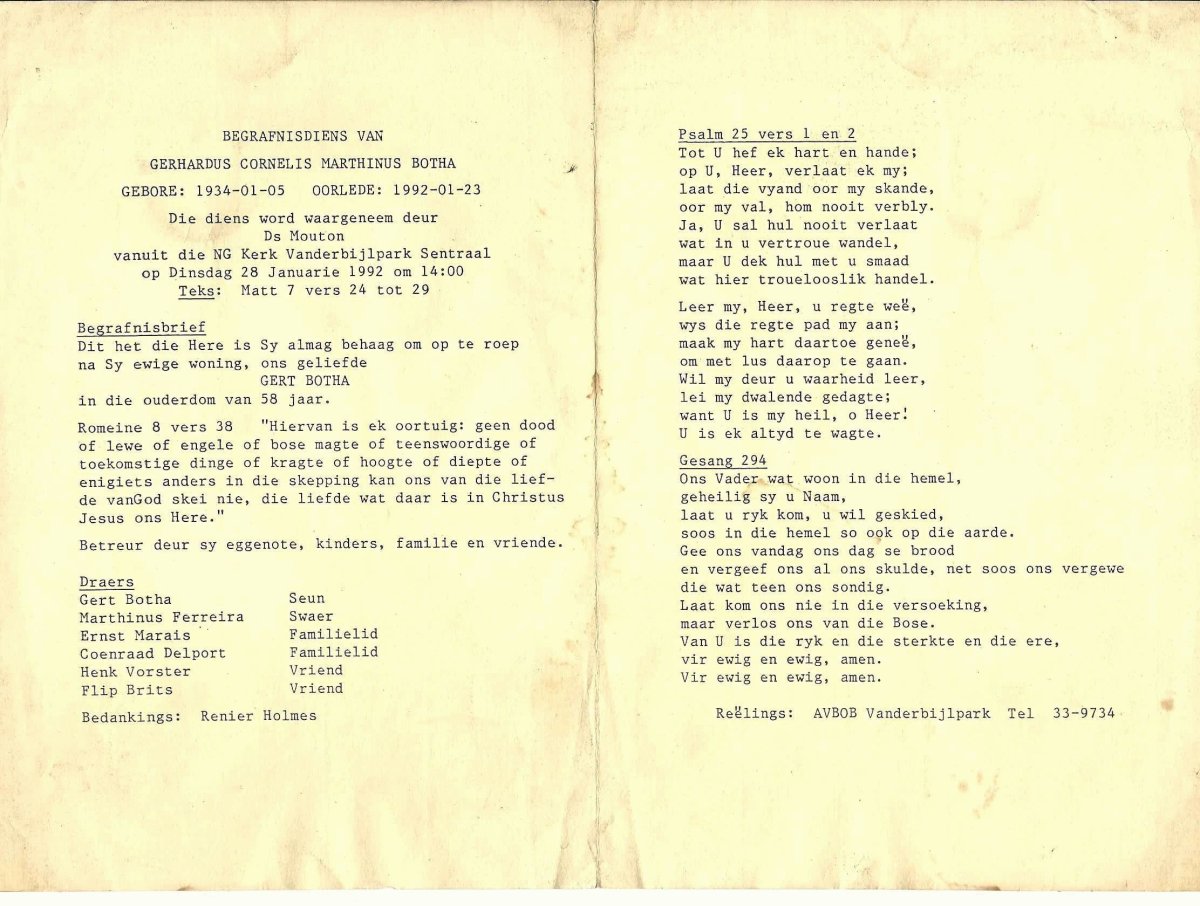 BEGRAFNISDIENS VAN
GERHARDUS CORNELIS MARTHINUS BOTHA
GEBORE: 1934-01-05 OORLEDE: 1992-01-23
Die diens word waargeneem deur
Ds Mouton
vanuit die NG Kerk Vanderbijlpark Sentraal
op Dinsdag 28 Januarie 1992 om 14:00
Teks: Matt 7 vers 24 tot 29
Begrafnisbrief
Dit het die Here is Sy almag behaag om op te roep
na Sy ewige woning, ons geliefde
GERT BOTHA
in die ouderdom van 58 jaar.
Romeine 8 vers 38 "Hiervan is ek oortuig: geen dood
of lewe of engele of bose magte of teenswoordige of
toekomstige dinge of kragte of hoogte of diepte of
enigiets anders in die skepping kan ons van die lief-
de vanGod skei nie, die liefde wat daar is in Christus
Jesus ons Here."
Betreur deur sy eggenote, kinders, familie en vriende.
Draers
Gert Botha Seun
Marthinus Ferreira Swaer
Ernst Marais Familielid
Coenraad Delport Familielid
Henk Vorster Vriend
Flip Brits Vriend
Bedankings: Renier Holmes
Psalm 25 vers 1 en 2
Tot U hef ek hart en hande;
op U, Heer, verlaat ek my;
laat die vyand oor my skande,
oor my val, hom nooit verbly.
Ja, U sal hul nooit verlaat
wat in u vertroue wandel,
maar U dek hul met u smaad
wat hier trouelooslik handel.
Leer my, Heer, u regte weë,
wys die regte pad my aan;
maak my hart daartoe geneë,
om met lus daarop te gaan.
Wil my deur u waarheid leer,
lei my dwalende gedagte;
want U is my heil, o Heer!
U is ek altyd te wagte.
Gesang 294
Ons Vader wat woon in die hemel,
geheilig sy u Naam,
laat u ryk kom, u wil geskied,
soos in die hemel so ook op die aarde.
Gee ons vandag ons dag se brood
en vergeef ons al ons skulde, net soos ons vergewe
die wat teen ons sondig.
Laat kom ons nie in die versoeking,
maar verlos ons van die Bose.
Van U is die ryk en die sterkte en die ere,
vir ewig en ewig, amen.
Vir ewig en ewig, amen.
Reëlings: AVBOB Vanderbijlpark Tel 33-9734